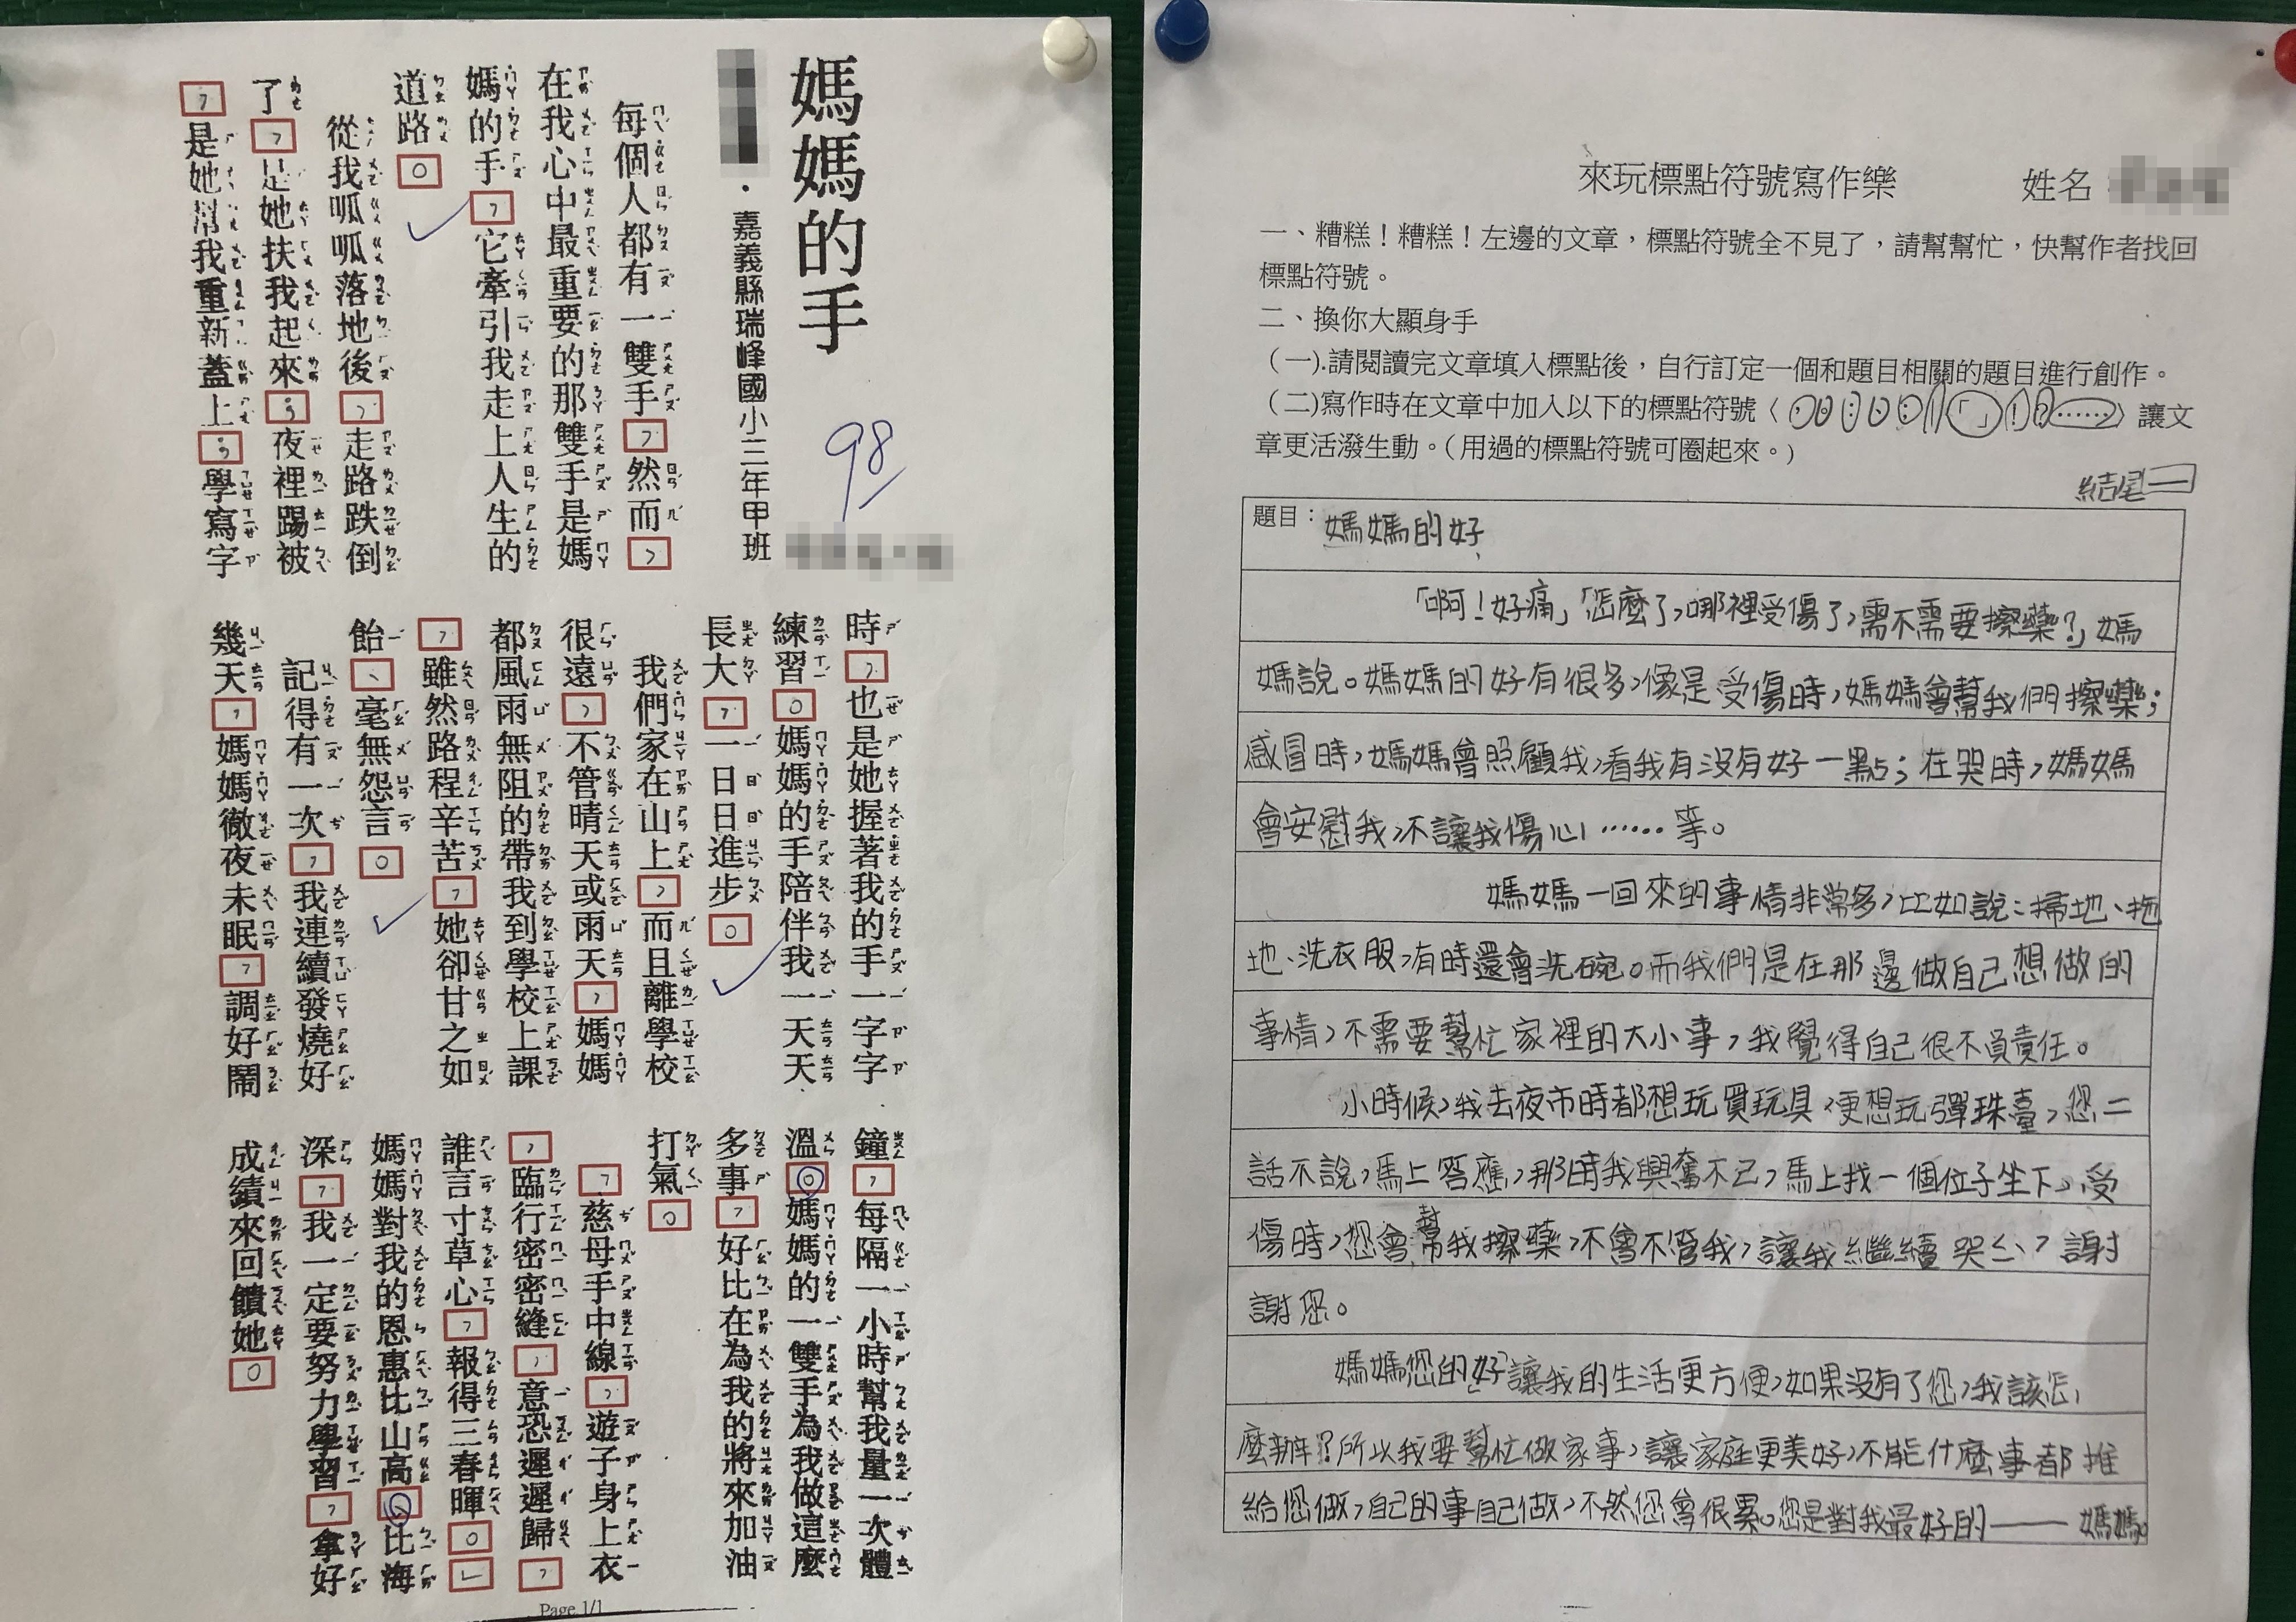 媽媽的手
98
・嘉義縣瑞峰國小三年甲班
每個人都有一雙手，然而，
在我心中最重要的那雙手是媽
媽的手，它牽引我走上人生的
道路。
從我呱呱落地後，走路跌倒
了，是她扶我起來；夜裡踢被
，是她幫我重新蓋上；學寫字
時，也是她握著我的手一字字
練習。媽媽的手陪伴我一天天
長大，一日日進步。
我們家在山上，而且離學校
很遠，不管晴天或雨天，媽媽
都風雨無阻的帶我到學校上課
，雖然路程辛苦，她卻甘之如
飴、毫無怨言。
記得有一次，我連續發燒好
幾天，媽媽徹夜未眠，調好鬧
鐘，每隔一小時幫我量一次體
溫。媽媽的一雙手為我做這麼
多事，好比在為我的將來加油
打氣。
「慈母手中線，遊子身上衣
，臨行密密縫，意恐遲遲歸，
誰言寸草心，報得三春暉。」
媽媽對我的恩惠比山高、比海
深，我一定要努力學習，拿好
成績來回饋她。
Page 1/1
來玩標點符號寫作樂 姓名
一、糟糕！糟糕！左邊的文章，標點符號全不見了，請幫幫忙，快幫作者找回
標點符號。
二、換你大顯身手
（一).請閱讀完文章填入標點後，自行訂定一個和題目相關的題目進行創作。
（二)寫作時在文章中加入以下的標點符號〈，。：、；│「」！？……〉讓文
章更活潑生動。(用過的標點符號可圈起來。)
結尾
題目：媽媽的好
「啊！好痛」「怎麼了，哪裡受傷了，需不需要擦藥？」媽
媽說。媽媽的好有很多，像是受傷時，媽媽會幫我們擦藥；
感冒時，媽媽會照顧我，看我有沒有好一點；在哭時，媽媽
會安慰我，不讓我傷心……等。
媽媽一回來的事情非常多，比如說：掃地、拖
地、洗衣服，有時還會洗碗。而我們是在那邊做自己想做的
事情，不需要幫忙家裡的大小事，我覺得自己很不負責任。
小時候，我去夜市時都想玩買玩具，更想玩彈珠臺，您二
話不說，馬上答應，那時我興奮不已，馬上找一個位子坐下。受
傷時，您會幫我擦藥，不會不管我，讓我繼續哭，謝
謝您。
媽媽您的「好」讓我的生活更方便，如果沒有了您，我該怎
麼辦？所以我要幫忙做家事，讓家庭更美好，不能什麼事都推
給您做，自己的事自己做，不然您會很累。您是對我最好的——媽媽。